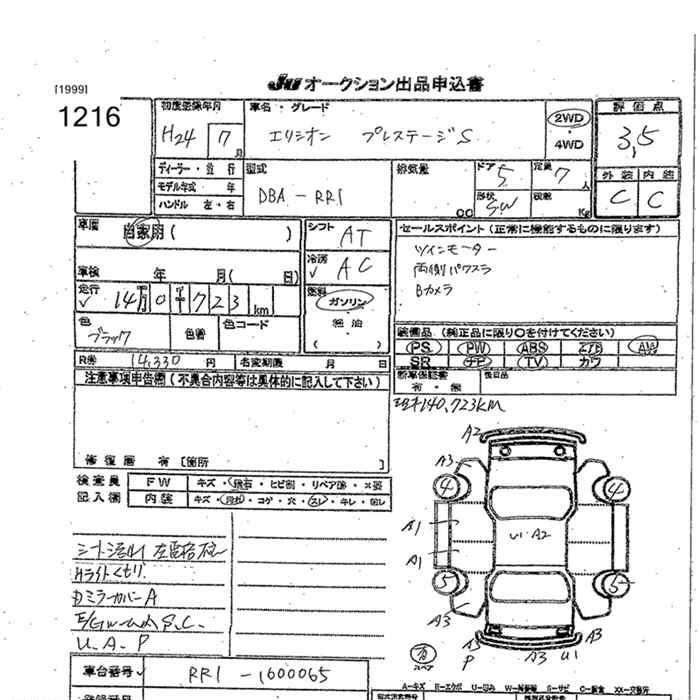 JU オークション出品申込書
[1999]
1216
初度登録年月
H24 7月
車名・グレード
エリシオン プレステージS
2WD
・4WD
評価点
3.5
ディーラー・並行
モデル年式 年
ハンドル 左・右
型式
DBA-RR1
排気量
CC
ドア 5
形状 SW
定員 7人
積載 Kg
外装 内装
C C
車歴 自家用( )
車検 年 月( 日)
走行 14万0千723km
シフト AT
冷房 AC
燃料 ガソリン
・軽油
( )
色 ブラック
色替
色コード
セールスポイント(正常に機能するものに限ります)
ツインモーター
両側パワスラ
Bカメラ
装備品(純正品に限り○を付けてください)
PS PW ABS エアB AW
SR ナビ TV カワ
R券 14,330円
名変期限 月 日
新車保証書
有・無
後日品
注意事項申告欄(不具合内容等は具体的に記入して下さい)
修復歴 有[箇所 ]
140,723km
検査員
記入欄
FW キズ・飛石・ヒビ割・リペア跡・X要
内装 キズ・汚れ・コゲ・穴・スレ・キレ
Hライトくもり
ミラーカバーA
U.A.P
A2
A3
4 4
A1
U1・A2
A1
5 5
A3
A3
有
スペア
P
A3 U1
車台番号 RR1-1600065
A-キズ E-エクボ U-凹み